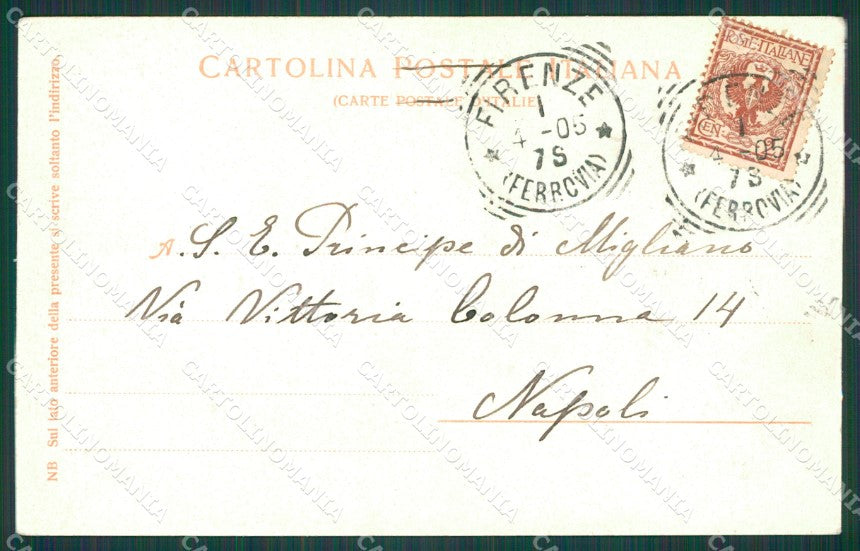 CARTOLINA POSTALE ITALIANA
(CARTE POSTALE D'ITALIE)
FIRENZE
1
4 -05
7S
(FERROVIA)
POSTE·ITALIANE
CEN.
1
4 -05
7S
(FERROVIA)
A. S. E. Principe di Migliano
Via Vittoria Colonna 14
Napoli
NB Sul lato anteriore della presente si scrive soltanto l'indirizzo.
CARTOLINOMANIA